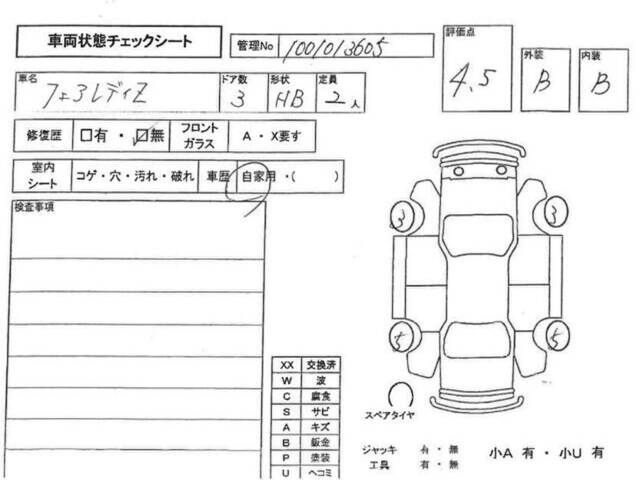 車両状態チェックシート
管理No 1001013605
評価点
4.5
外装
B
内装
B
車名
フェアレディZ
ドア数
3
形状
HB
定員
2人
修復歴 □有・☑無
フロントガラス A・X要す
室内シート コゲ・穴・汚れ・破れ
車歴 自家用・( )
検査事項
3 3
5 5
XX 交換済
W 波
C 腐食
S サビ
A キズ
B 鈑金
P 塗装
U ヘコミ
スペアタイヤ
ジャッキ 有・無
工具 有・無
小A 有・小U 有